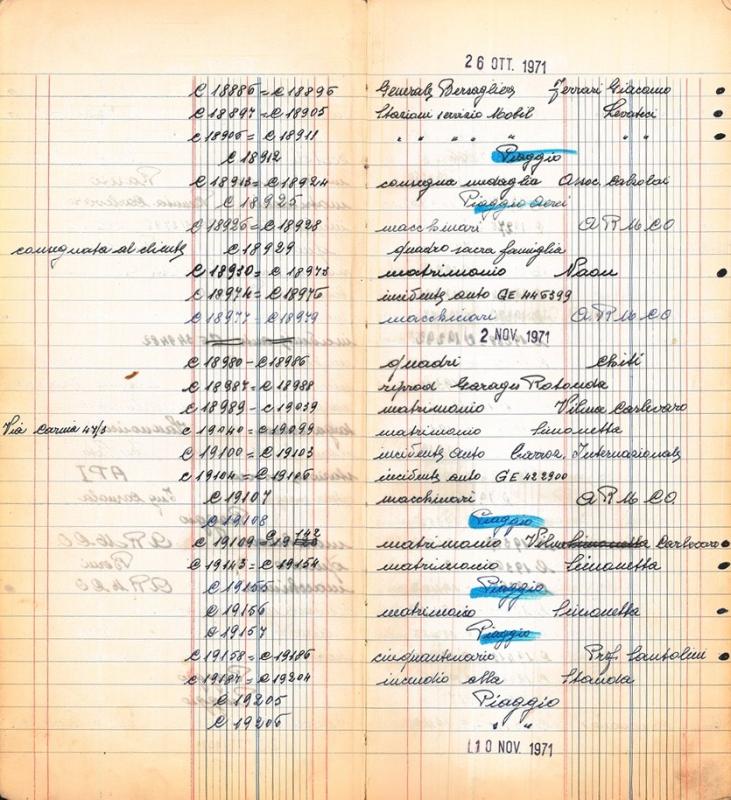 26 OTT. 1971
C 18886 = C 18896 Generale Bersagliere Ferrari Giacomo
C 18897 = C 18905 Stazioni servizio Mobil Levatici
C 18906 = C 18911 " " " " " " "
C 18912 Piaggio
C 18913 = C 18924 consegna medaglia Assoc. Calzolai
C 18925 Piaggio Aerei
C 18926 = C 18928 macchinari A R M C O
consegnata al cliente C 18929 quadro sacra famiglia
C 18930 = C 18973 matrimonio Naon
C 18974 = C 18976 incidente auto GE 446399
C 18977 - C 18979 macchinari A R M C O
2 NOV. 1971
C 18980 - C 18986 quadri Chiti
C 18987 = C 18988 reprod Garage Rotonda
C 18989 - C 19039 matrimonio Vilma Carbovaro
Via Carnia 47/3 C 19040 = C 19099 matrimonio Simonetta
C 19100 = C 19103 incidente auto Internazionale
C 19104 = C 19106 incidente auto GE 422900
C 19107 macchinari A R M C O
C 19108 Piaggio
C 19109 = C 19142 matrimonio Vilma Carbovaro
C 19143 = C 19154 matrimonio Simonetta
C 19155 Piaggio
C 19156 matrimonio Simonetta
C 19157 Piaggio
C 19158 = C 19186 cinquantenario Prof. Santolini
C 19187 = C 19204 incendio alla Standa
C 19205 Piaggio
C 19206 " "
10 NOV. 1971